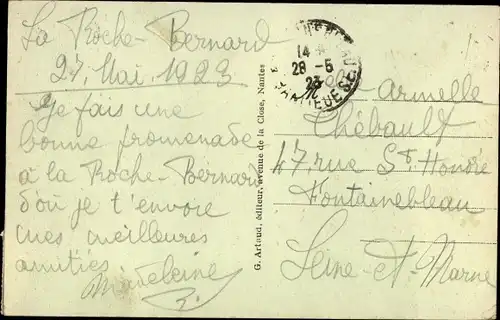 La Roche-Bernard
27 Mai 1923
Je fais une
bonne promenade
à la Roche-Bernard
d'où je t'envoie
mes meilleures
amitiés
Madeleine
G. Artaud, éditeur, avenue de la Close, Nantes
14
28-5
23
Armelle
Chébault
47, rue St Honoré
Fontainebleau
Seine-et-Marne